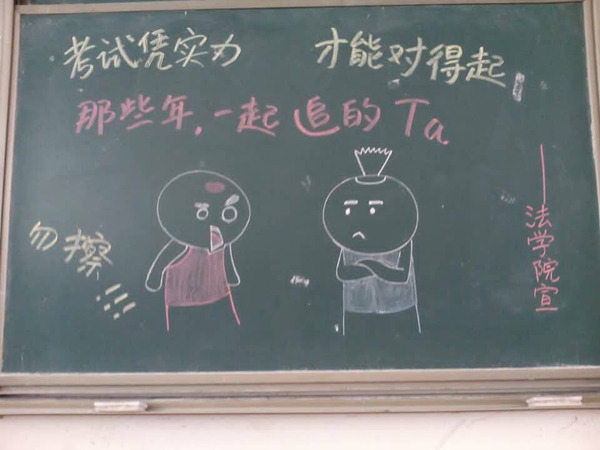 考试凭实力 才能对得起
那些年,一起追的 Ta
勿擦!!!
——法学院宣